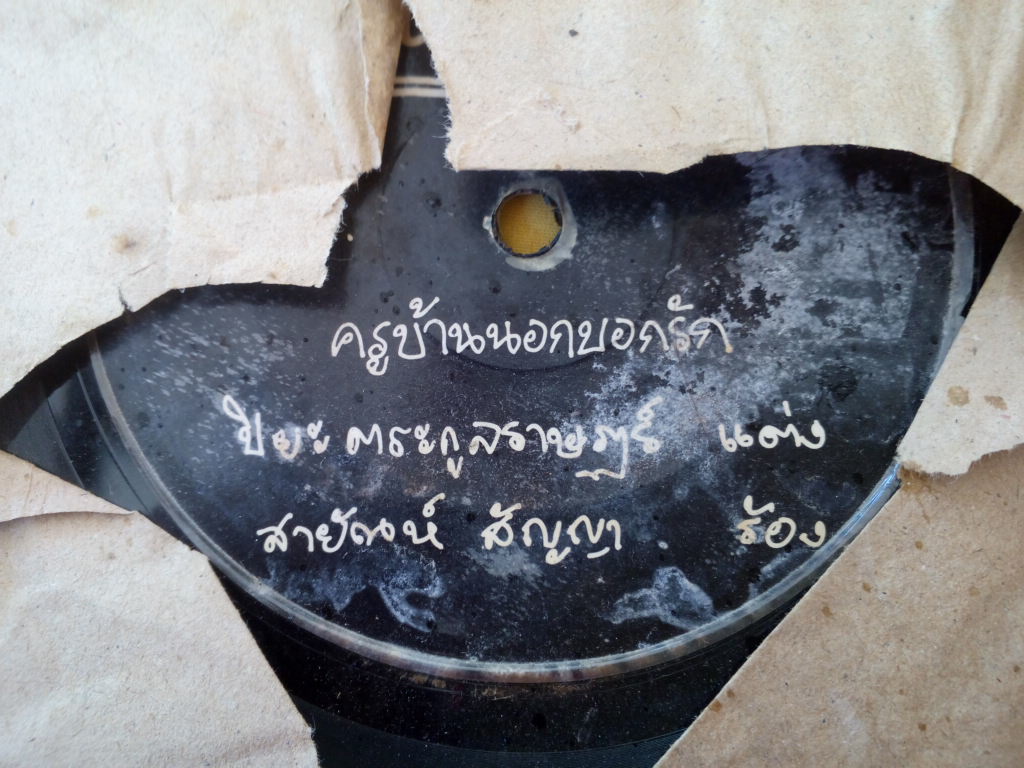 ครูบ้านนอกบอกรัก
ปิยะ ตระกูลราษฎร์ แต่ง
สายัณห์ สัญญา ร้อง